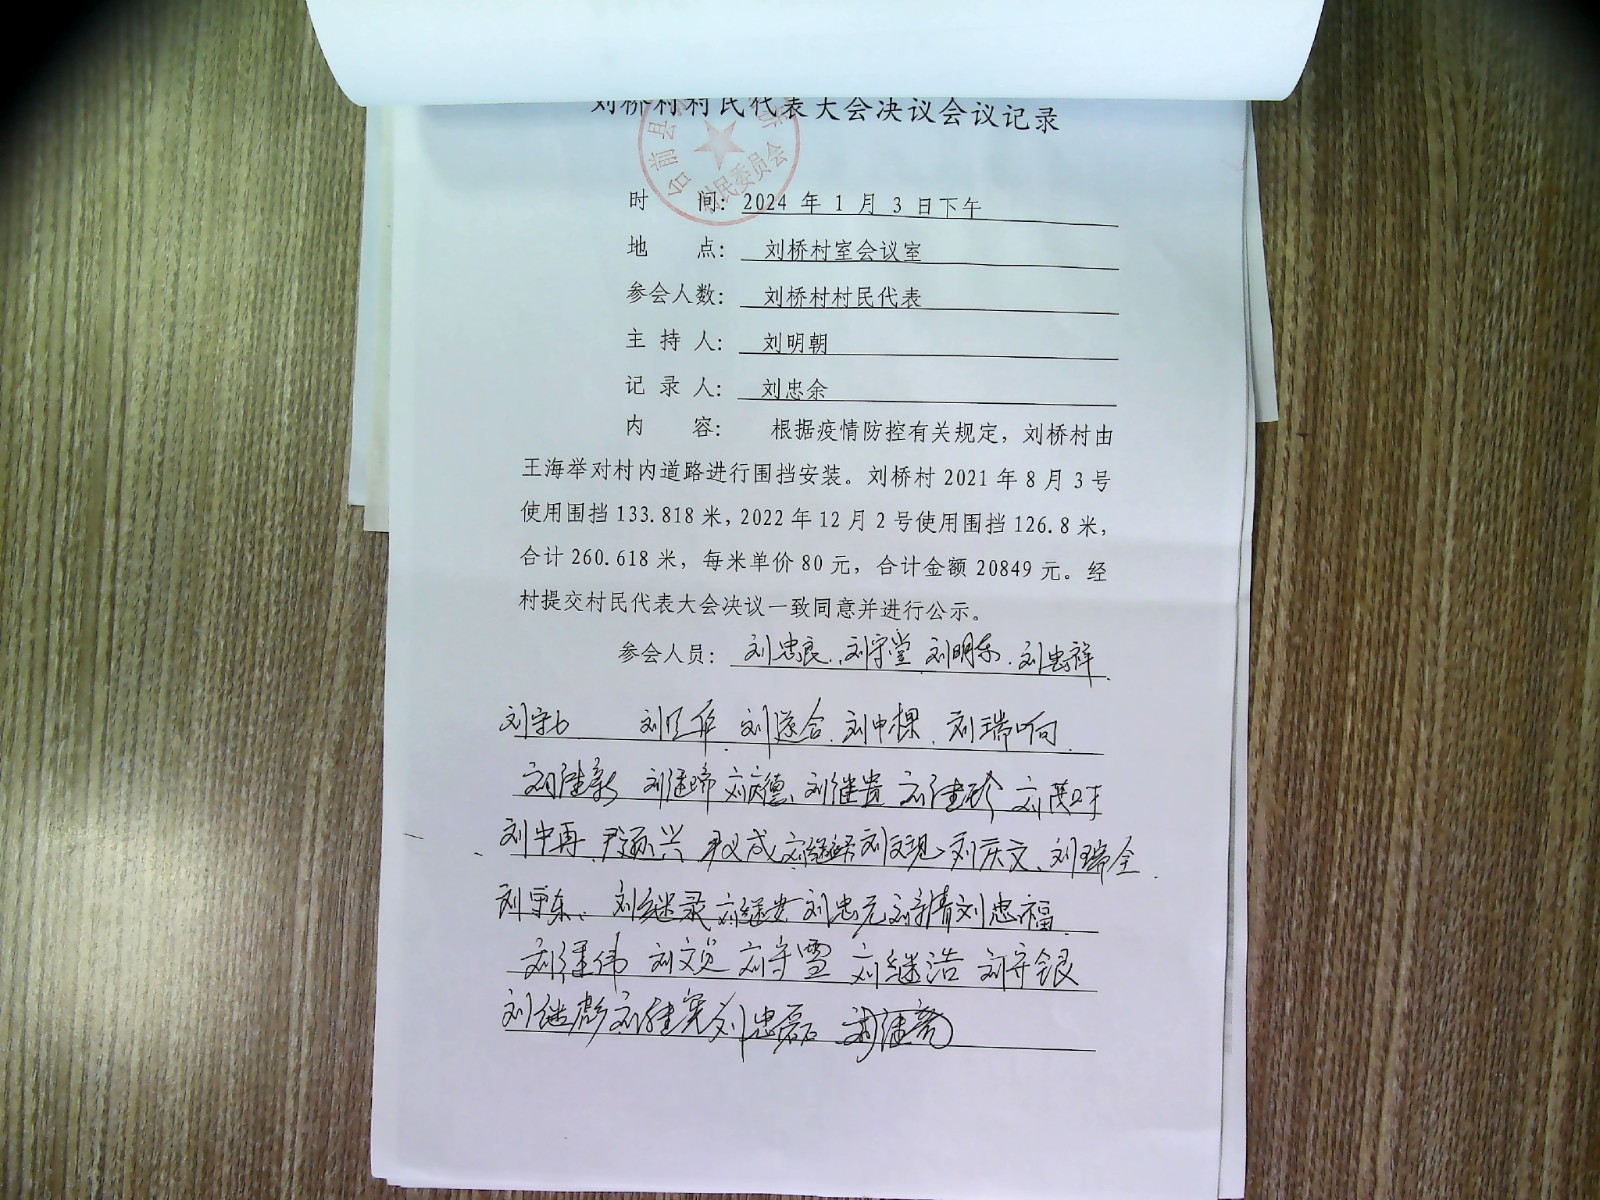 刘桥村村民代表大会决议会议记录
台前县
村民委员会
时 间: 2024 年 1 月 3 日下午
地 点: 刘桥村室会议室
参会人数: 刘桥村村民代表
主 持 人: 刘明朝
记 录 人: 刘忠余
内 容: 根据疫情防控有关规定，刘桥村由
王海举对村内道路进行围挡安装。刘桥村 2021 年 8 月 3 号
使用围挡 133.818 米，2022 年 12 月 2 号使用围挡 126.8 米，
合计 260.618 米，每米单价 80 元，合计金额 20849 元。经
村提交村民代表大会决议一致同意并进行公示。
参会人员: 刘忠良、刘守堂 刘明东、刘忠祥
刘遂合、刘中棵、刘瑞响
刘庆德、刘继贵
刘中再、尹振兴 刘文现、刘庆文、刘瑞全
刘继录 刘忠元 刘忠福
刘守雪 刘继浩 刘守银
刘继彪 刘忠磊